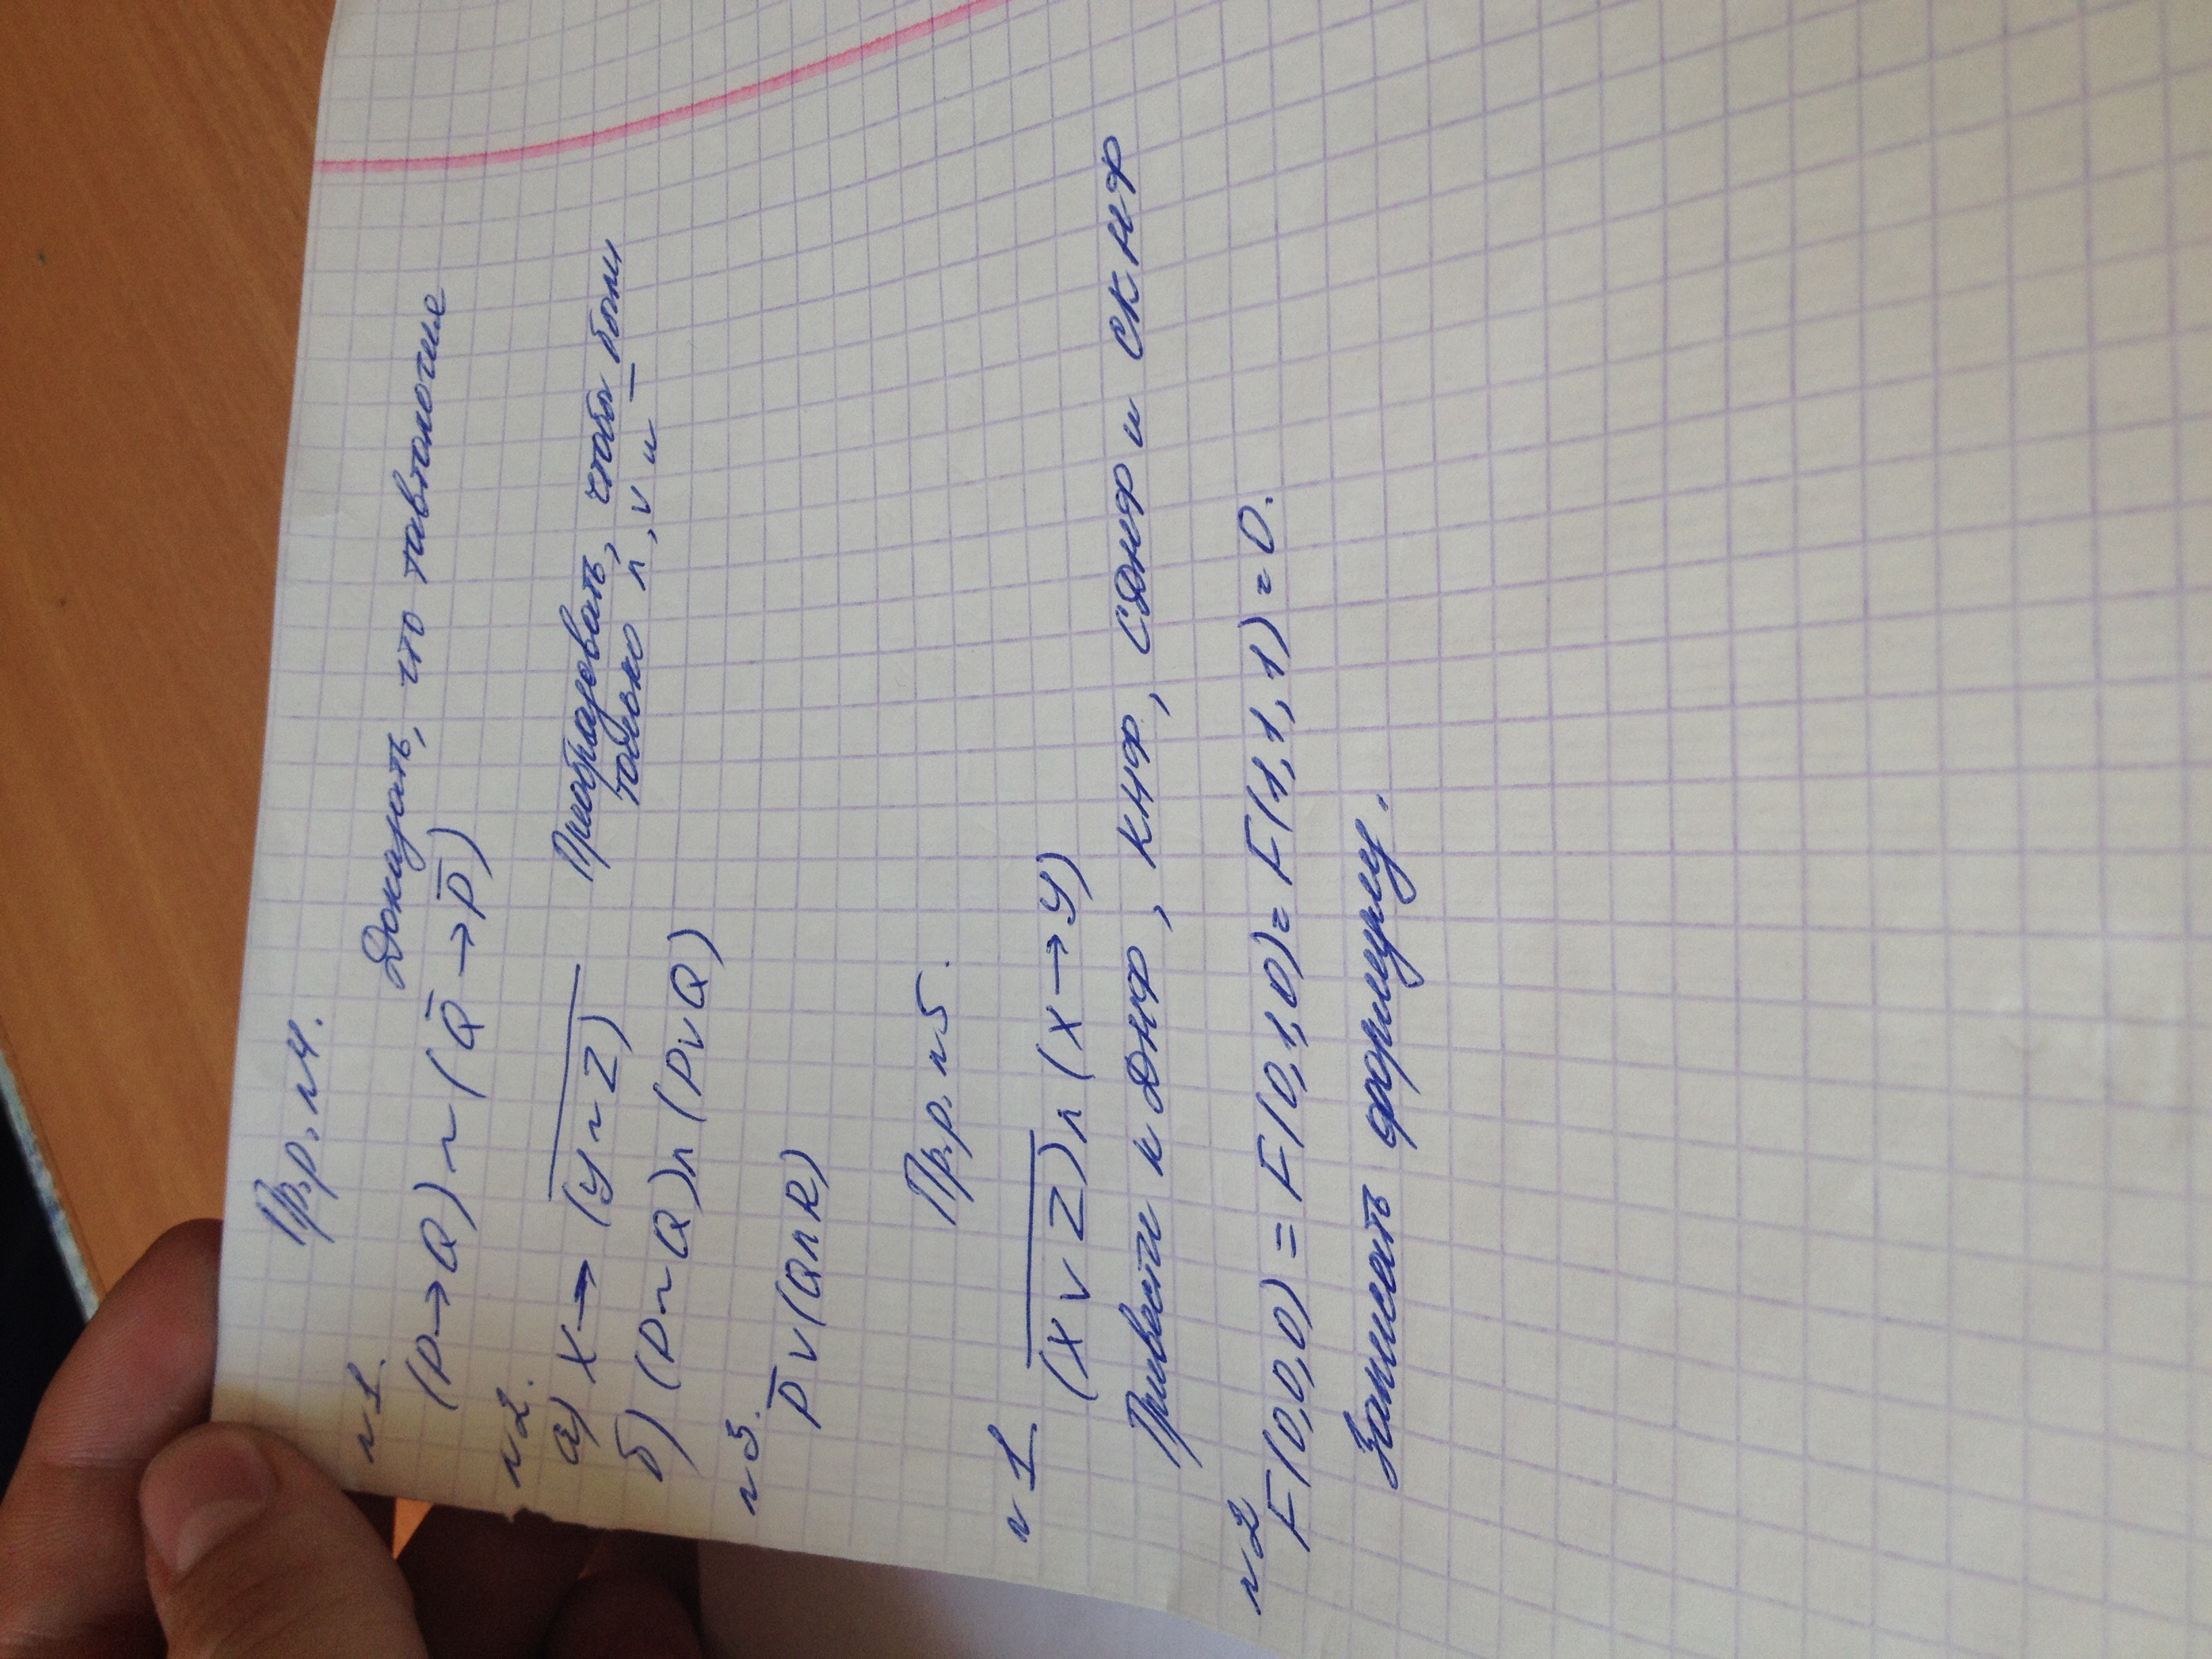 Пр.р. №4.
№1.
Доказать, что тавтология
(P→Q) ~ (Q̅→P̅)
№2. Преобразовать, чтобы были
а) X→(̅y̅ ̅~̅ ̅Z̅)̅ только ∧, ∨ и ‾
б) (P~Q)∧(P∨Q)
№3.
P̅∨(Q∧R)
Пр.р. №5.
№1.
(̅X̅ ̅∨̅ ̅Z̅)̅∧(X→y)
Привести к ДНФ, КНФ, СДНФ и СКНФ
№2
F(0,0,0) = F(0,1,0) = F(1,1,1) = 0.
Записать формулу.